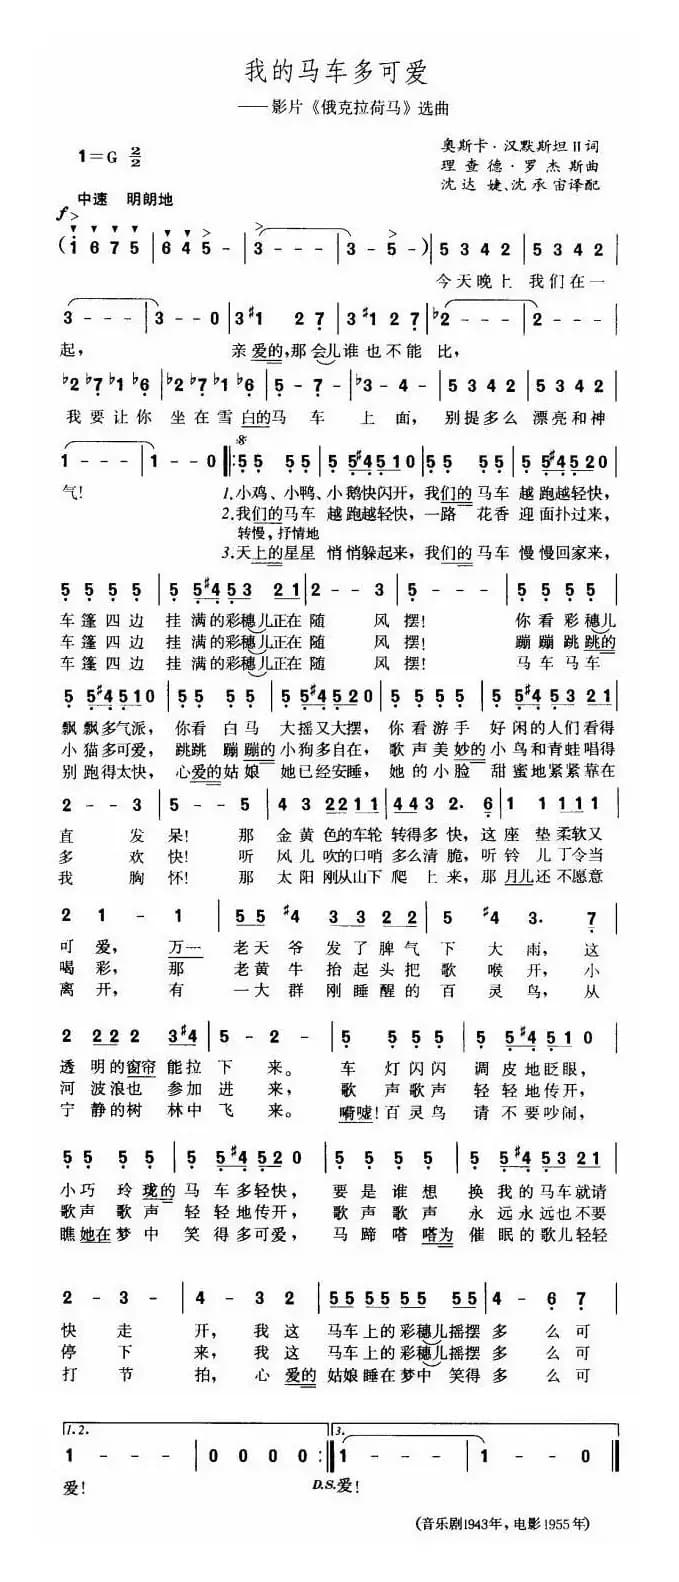 我的马车多可爱
——影片《俄克拉荷马》选曲
奥斯卡·汉默斯坦II词
1=G 2/2
理查德·罗杰斯曲
沈达婕、沈承宙译配
中速 明朗地
f
(1 6 7 5 | 6 4 5 - | 3 - - - | 3 - 5 - ) | 5 3 4 2 | 5 3 4 2 |
今天晚上 我们在一
3 - - - | 3 - - 0 | 3 #1 2 7 | 3 #1 2 7 | b2 - - - | 2 - - - |
起， 亲爱的，那会儿谁也不能比，
b2 b7 b1 b6 | b2 b7 b1 b6 | 5 - 7 - | b3 - 4 - | 5 3 4 2 | 5 3 4 2 |
我要让你 坐在雪白的马 车 上 面， 别提多么 漂亮和神
1 - - - | 1 - - 0 |: 5 5 5 5 | 5 5#4510 | 55 5 5 | 5 5#4520 |
气! 1.小鸡、小鸭、小鹅快闪开，我们的马车 越跑越轻快，
2.我们的马车 越跑越轻快，一路 花香 迎面扑过来，
转慢，抒情地
3.天上的星星 悄悄躲起来，我们的马车 慢慢回家来，
5 5 5 5 | 5 5#4 53 21 | 2 - - 3 | 5 - - - | 5 5 5 5 |
车篷四边 挂满的彩穗儿正在随 风 摆! 你看彩穗儿
车篷四边 挂满的彩穗儿正在随 风 摆! 蹦蹦跳跳的
车篷四边 挂满的彩穗儿正在随 风 摆! 马车马车
5 5#4510 | 5 5 5 5 | 5 5#4520 | 5 5 5 5 | 5 5#4 53 21 |
飘飘多气派，你看 白马 大摇又大摆，你看游手 好闲的人们看得
小猫多可爱，跳跳 蹦蹦的小狗多自在，歌声美妙的小鸟和青蛙唱得
别跑得太快，心爱的姑娘 她已经安睡，她的小脸 甜蜜地紧紧靠在
2 - - 3 | 5 - - 5 | 4 3 2211 | 4433 2. 6 | 1 1 1111 |
直 发 呆! 那 金黄 色的车轮 转得多快，这 座 垫柔软又
多 欢 快! 听 风儿 吹的口哨 多么清脆，听 铃 儿丁令当
我 胸 怀! 那 太阳 刚从山下 爬 上 来，那 月儿还不愿意
2 1 - 1 | 55 5 #4 | 3 3 2 2 | 5 #4 3. 7 |
可 爱， 万一 老天爷 发了脾气 下 大 雨，这
喝 彩， 那 老黄牛 抬起头把 歌 喉 开，小
离 开， 有 一大群 刚睡醒的 百 灵 鸟，从
2 2 2 2 3#4 | 5 - 2 - | 5 5 5 5 | 5 5#4510 |
透 明的窗帘 能拉 下 来。 车 灯闪闪 调皮地眨眼，
河 波浪也 参加 进 来， 歌 声歌声 轻轻地传开，
宁 静的树 林中 飞 来。 嗬嘘!百灵鸟 请 不要吵闹，
5 5 5 5 | 5 5#4520 | 5 5 5 5 | 5 5#4 53 21 |
小巧 玲珑的 马车多轻快， 要是谁想 换我的马车就请
歌声歌声 轻轻地传开， 歌声歌声 永远永远也不要
瞧她在梦中 笑得多可爱， 马蹄嗒嗒为 催眠的歌儿轻轻
2 - 3 - | 4 - 3 2 | 5555 55 55 | 4 - 6 7 |
快 走 开，我这 马车上的彩穗儿摇摆 多 么可
停 下 来，我这 马车上的彩穗儿摇摆 多 么可
打 节 拍，心 爱的 姑娘睡在梦中 笑得 多 么可
1.2. 3.
1 - - - | 0 0 0 0 :| 1 - - - | 1 - - 0 ||
爱! D.S.爱!
(音乐剧1943年，电影1955年)